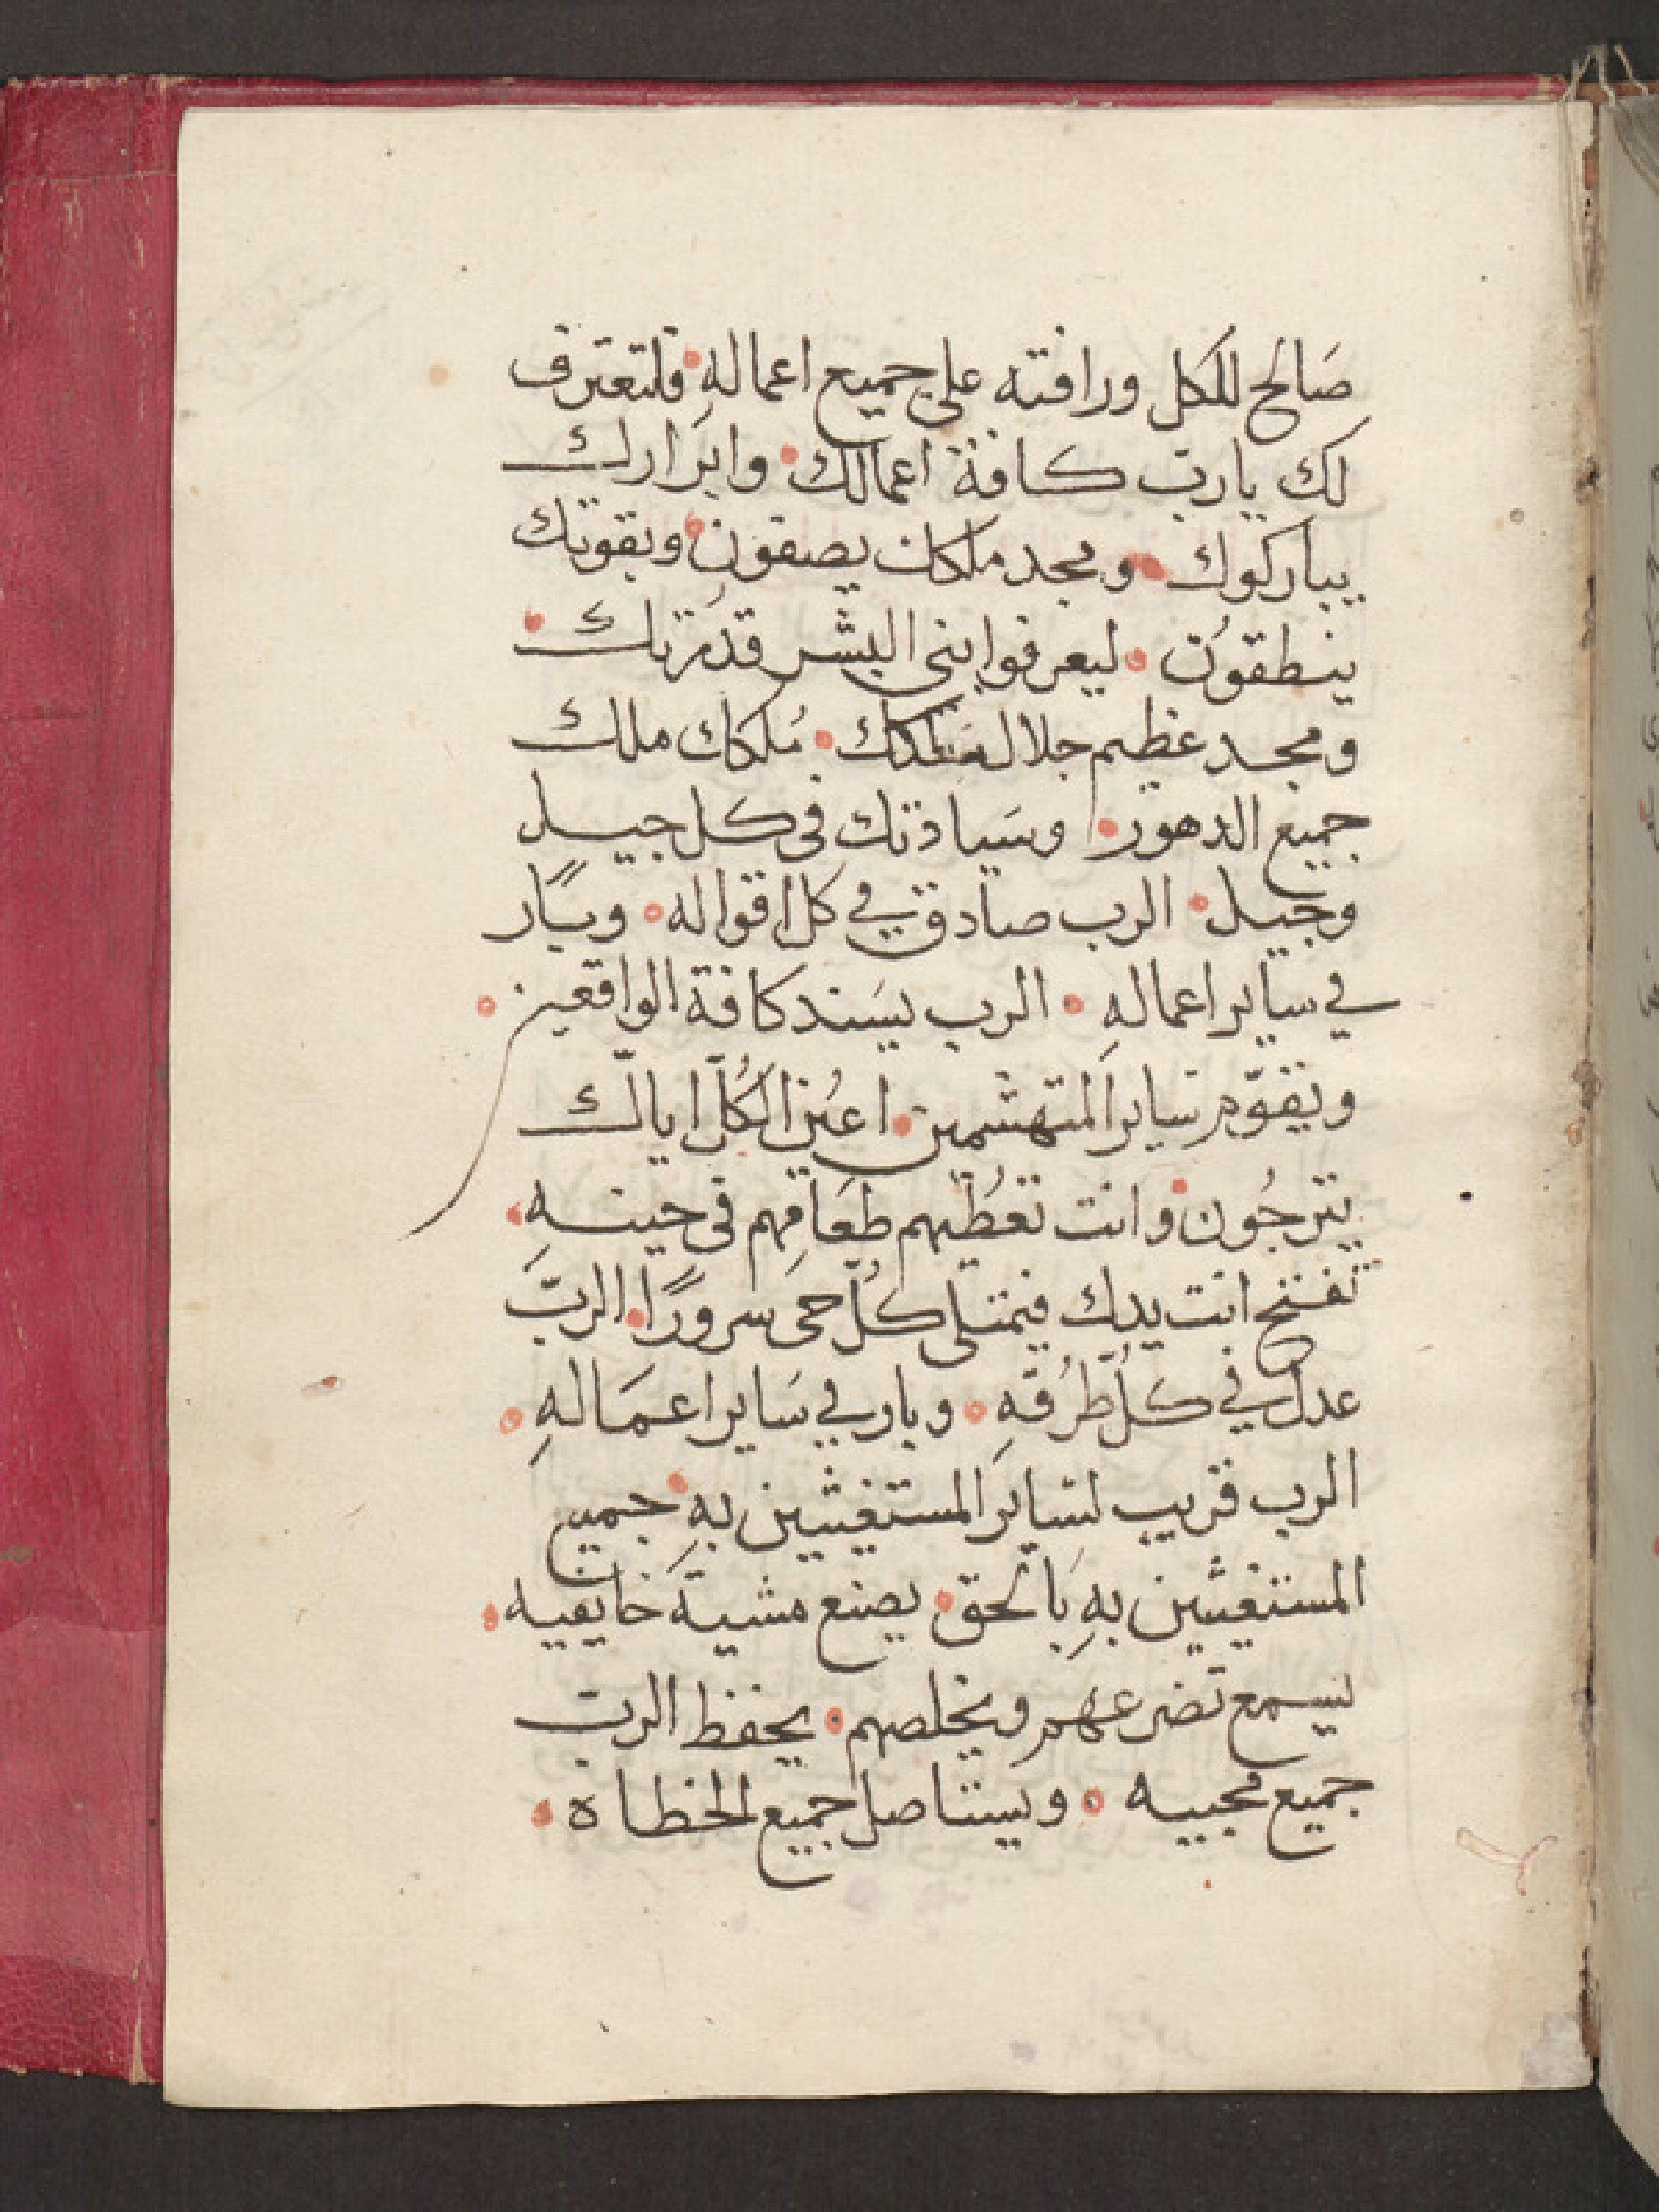 صَالح للكل ورافته على جميع اعمالهِ فلتعترف
لك يارب كافة اعمالك وابرَارك
يباركوك ومجد ملكك يصفون وبقوتك
ينطقون ليعرفوا بني البشر قدرتك
ومجد عظيم جلال ملكك مُلكك ملك
جميع الدهور وسَيادتك في كل جيل
وجيل الرب صادق في كل اقواله وبار
في ساير اعمالهِ الرب يسَند كافة الواقعين
ويقوّم ساير المتهشمين اعيُن الكُلّ اياك
يترجُون وانت تعُطيهم طعَامِهم في حينهِ
تفتح انت يدك فيمتلى كلّ حى سرورًا الربّ
عدل في كلّ طرُقهِ وبار في سَاير اعمَالهِ
الرب قريب لساير المستغيثين بهِ جميع
المستغيثين بهِ بالحق يصنع مشية خايفيه
يسمع تضرعهم ويخلصهم يحفظ الرب
جميع محبيه ويستاصل جميع الخطاه